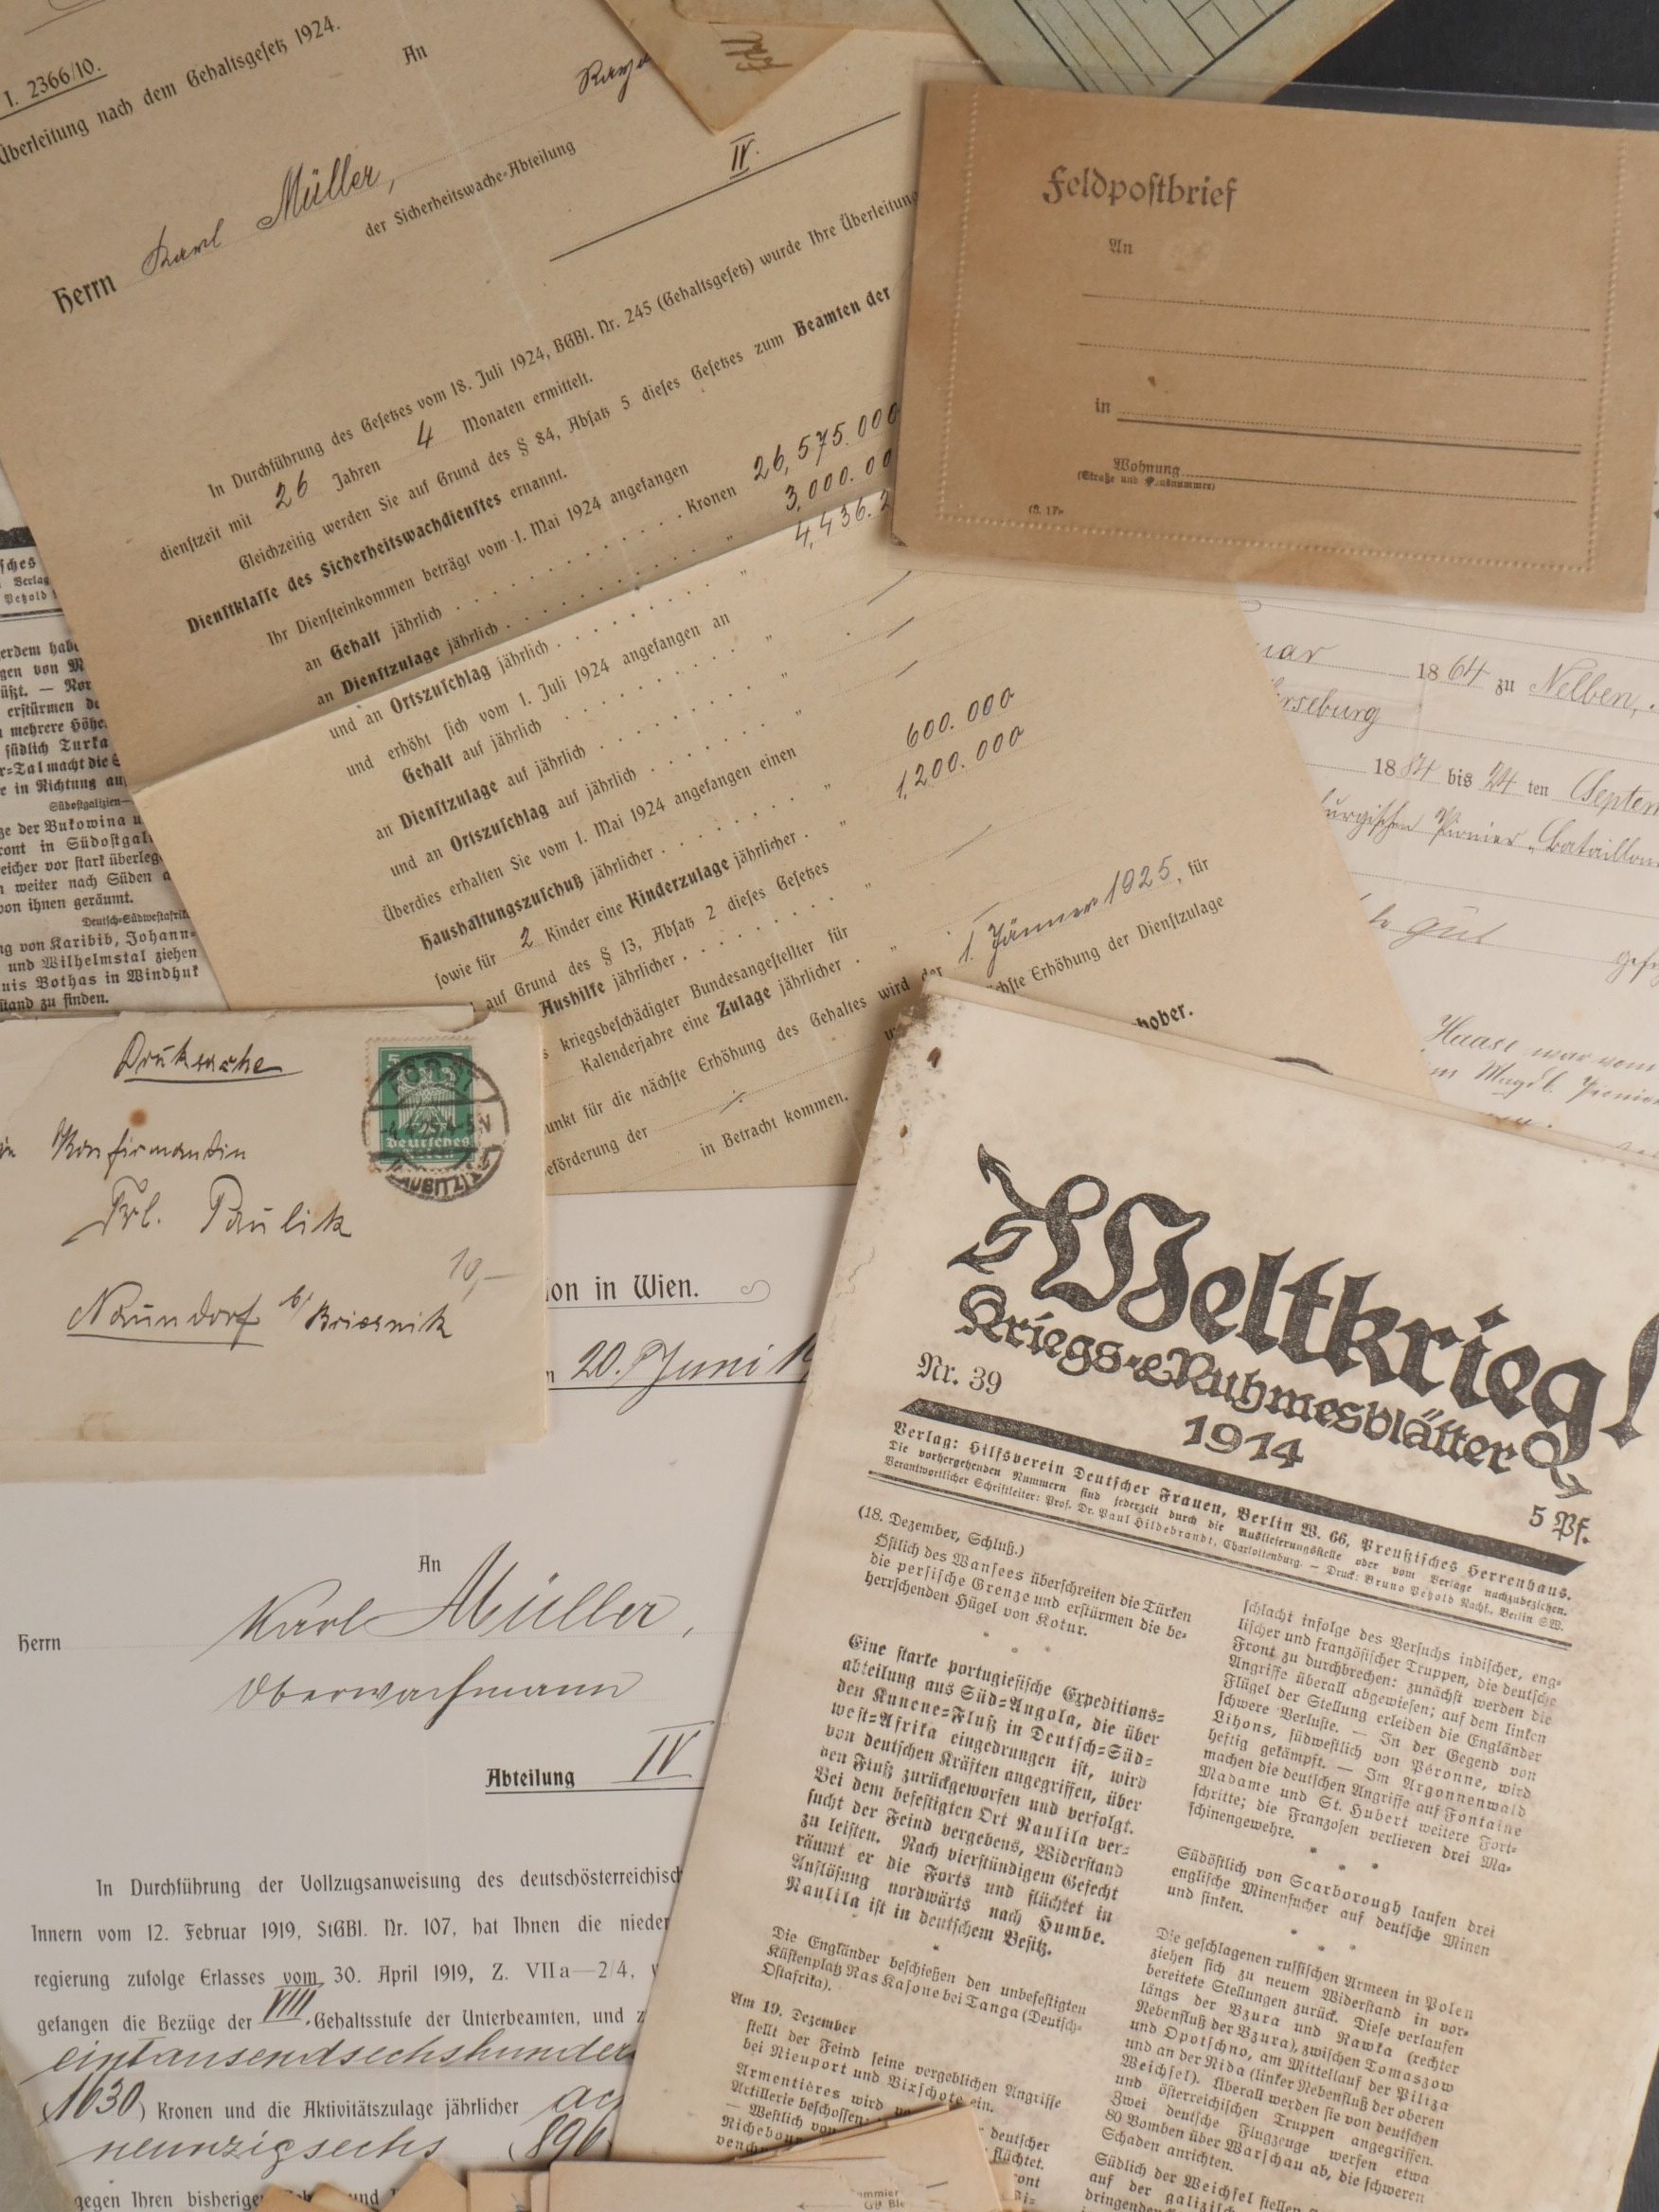 I. 2366/10.
Überleitung nach dem Gehaltsgesetz 1924.
An
Herrn Karl Müller,
der Sicherheitswache-Abteilung
IV.
In Durchführung des Gesetzes vom 18. Juli 1924, BGBl. Nr. 245 (Gehaltsgesetz) wurde Ihre Überleitung
dienstzeit mit 26 Jahren 4 Monaten ermittelt.
Gleichzeitig werden Sie auf Grund des § 84, Absatz 5 dieses Gesetzes zum Beamten der
Dienstklasse des Sicherheitswachdienstes ernannt.
Ihr Diensteinkommen beträgt vom 1. Mai 1924 angefangen
an Gehalt jährlich . . . . . . . . . . Kronen 26,575.000
an Dienstzulage jährlich . . . . . . . . . . " 3,000.00
und an Ortszuschlag jährlich . . . . . . . " 4,436.2
und erhöht sich vom 1. Juli 1924 angefangen an
Gehalt auf jährlich . . . . . . . . . "
an Dienstzulage auf jährlich . . . . . . . "
und an Ortszuschlag auf jährlich . . . . . . "
Überdies erhalten Sie vom 1. Mai 1924 angefangen einen
Haushaltungszuschuß jährlicher . . . . . . . . " 600.000
sowie für 2 Kinder eine Kinderzulage jährlicher . " 1,200.000
auf Grund des § 13, Absatz 2 dieses Gesetzes
Aushilfe jährlicher . . . . . . . "
kriegsbeschädigter Bundesangestellter für
Kalenderjahre eine Zulage jährlicher . "
unkt für die nächste Erhöhung des Gehaltes wird der 1. Jänner 1925, für
chste Erhöhung der Dienstzulage
eförderung der
in Betracht kommen.
hober.
Feldpostbrief
An
in
Wohnung
(Straße und Hausnummer)
1864 zu Nelben,
rseburg
1884 bis 24 ten Septem
urgischen Pionier-Bataillon
gut
Haase war vom
sches
Verlag
Petzold
erdem habe
gen von M
üßt. — Nor
erstürmen de
mehrere Höhe
südlich Turka
r-Tal macht die
e in Richtung au
Südostgalizien—
ze der Bukowina u
ront in Südostgal
eicher vor stark überleg
weiter nach Süden
von ihnen geräumt.
Deutsch-Südwestafrik
ng von Karibib, Johann-
und Wilhelmstal ziehen
uis Bothas in Windhuk
stand zu finden.
Drucksache
5
Deutsches
Konfirmandin
Frl. Paulik
10,—
Naundorf b/ Briesnik
ion in Wien.
20. Juni 1
An
Herrn Karl Müller,
Oberwachmann
Abteilung IV
In Durchführung der Vollzugsanweisung des deutschösterreichisch
Innern vom 12. Februar 1919, StGBl. Nr. 107, hat Ihnen die nieder
regierung zufolge Erlasses vom 30. April 1919, Z. VIIa—2/4,
gefangen die Bezüge der VIII. Gehaltsstufe der Unterbeamten, und z
eintausendsechshunder
1630) Kronen und die Aktivitätszulage jährlicher
neunzigsechs (896
gegen Ihren bisherigen
Weltkrieg!
Kriegs- & Ruhmesblätter
Nr. 39
1914
5 Pf.
Verlag: Hilfsverein Deutscher Frauen, Berlin W. 66, Preußisches Herrenhaus.
Die vorhergehenden Nummern sind jederzeit durch die Auslieferungsstelle oder vom Verlage nachzubeziehen.
Verantwortlicher Schriftleiter: Prof. Dr. Paul Hildebrandt, Charlottenburg. — Druck: Bruno Petzold Nachf., Berlin SW.
(18. Dezember, Schluß.)
Östlich des Wansees überschreiten die Türken
die persische Grenze und erstürmen die be-
herrschenden Hügel von Kotur.
Eine starke portugiesische Expeditions-
abteilung aus Süd-Angola, die über
den Kunene-Fluß in Deutsch-Süd-
west-Afrika eingedrungen ist, wird
von deutschen Kräften angegriffen, über
den Fluß zurückgeworfen und verfolgt.
Bei dem befestigten Ort Naulila ver-
sucht der Feind vergebens, Widerstand
zu leisten. Nach vierstündigem Gefecht
räumt er die Forts und flüchtet in
Auflösung nordwärts nach Humbe.
Naulila ist in deutschem Besitz.
Die Engländer beschießen den unbefestigten
Küstenplatz Ras Kasone bei Tanga (Deutsch-
Ostafrika).
Am 19. Dezember
stellt der Feind seine vergeblichen Angriffe
bei Nieuport und Bixschote ein.
Armentières wird
Artillerie beschossen;
— Westlich von
Richebou
deutscher
flüchtet.
ront
schlacht infolge des Versuchs indischer, eng-
lischer und französischer Truppen, die deutsche
Front zu durchbrechen: zunächst werden die
Angriffe überall abgewiesen; auf dem linken
Flügel der Stellung erleiden die Engländer
schwere Verluste. — In der Gegend von
Lihons, südwestlich von Péronne, wird
heftig gekämpft. — Im Argonnenwald
machen die deutschen Angriffe auf Fontaine
Madame und St. Hubert weitere Fort-
schritte; die Franzosen verlieren drei Ma-
schinengewehre.
Südöstlich von Scarborough laufen drei
englische Minensucher auf deutsche Minen
und sinken.
Die geschlagenen russischen Armeen in Polen
ziehen sich zu neuem Widerstand in vor-
bereitete Stellungen zurück. Diese verlaufen
längs der Bzura und Rawka (rechter
Nebenfluß der Bzura), zwischen Tomaszow
und Opotschno, am Mittellauf der Piliza
und an der Nida (linker Nebenfluß der oberen
Weichsel). Überall werden sie von deutschen
und österreichischen Truppen angegriffen.
Zwei deutsche Flugzeuge werfen etwa
80 Bomben über Warschau ab, die schweren
Schaden anrichten.
Südlich der Weichsel stellen
auf der galizisch
dringenden